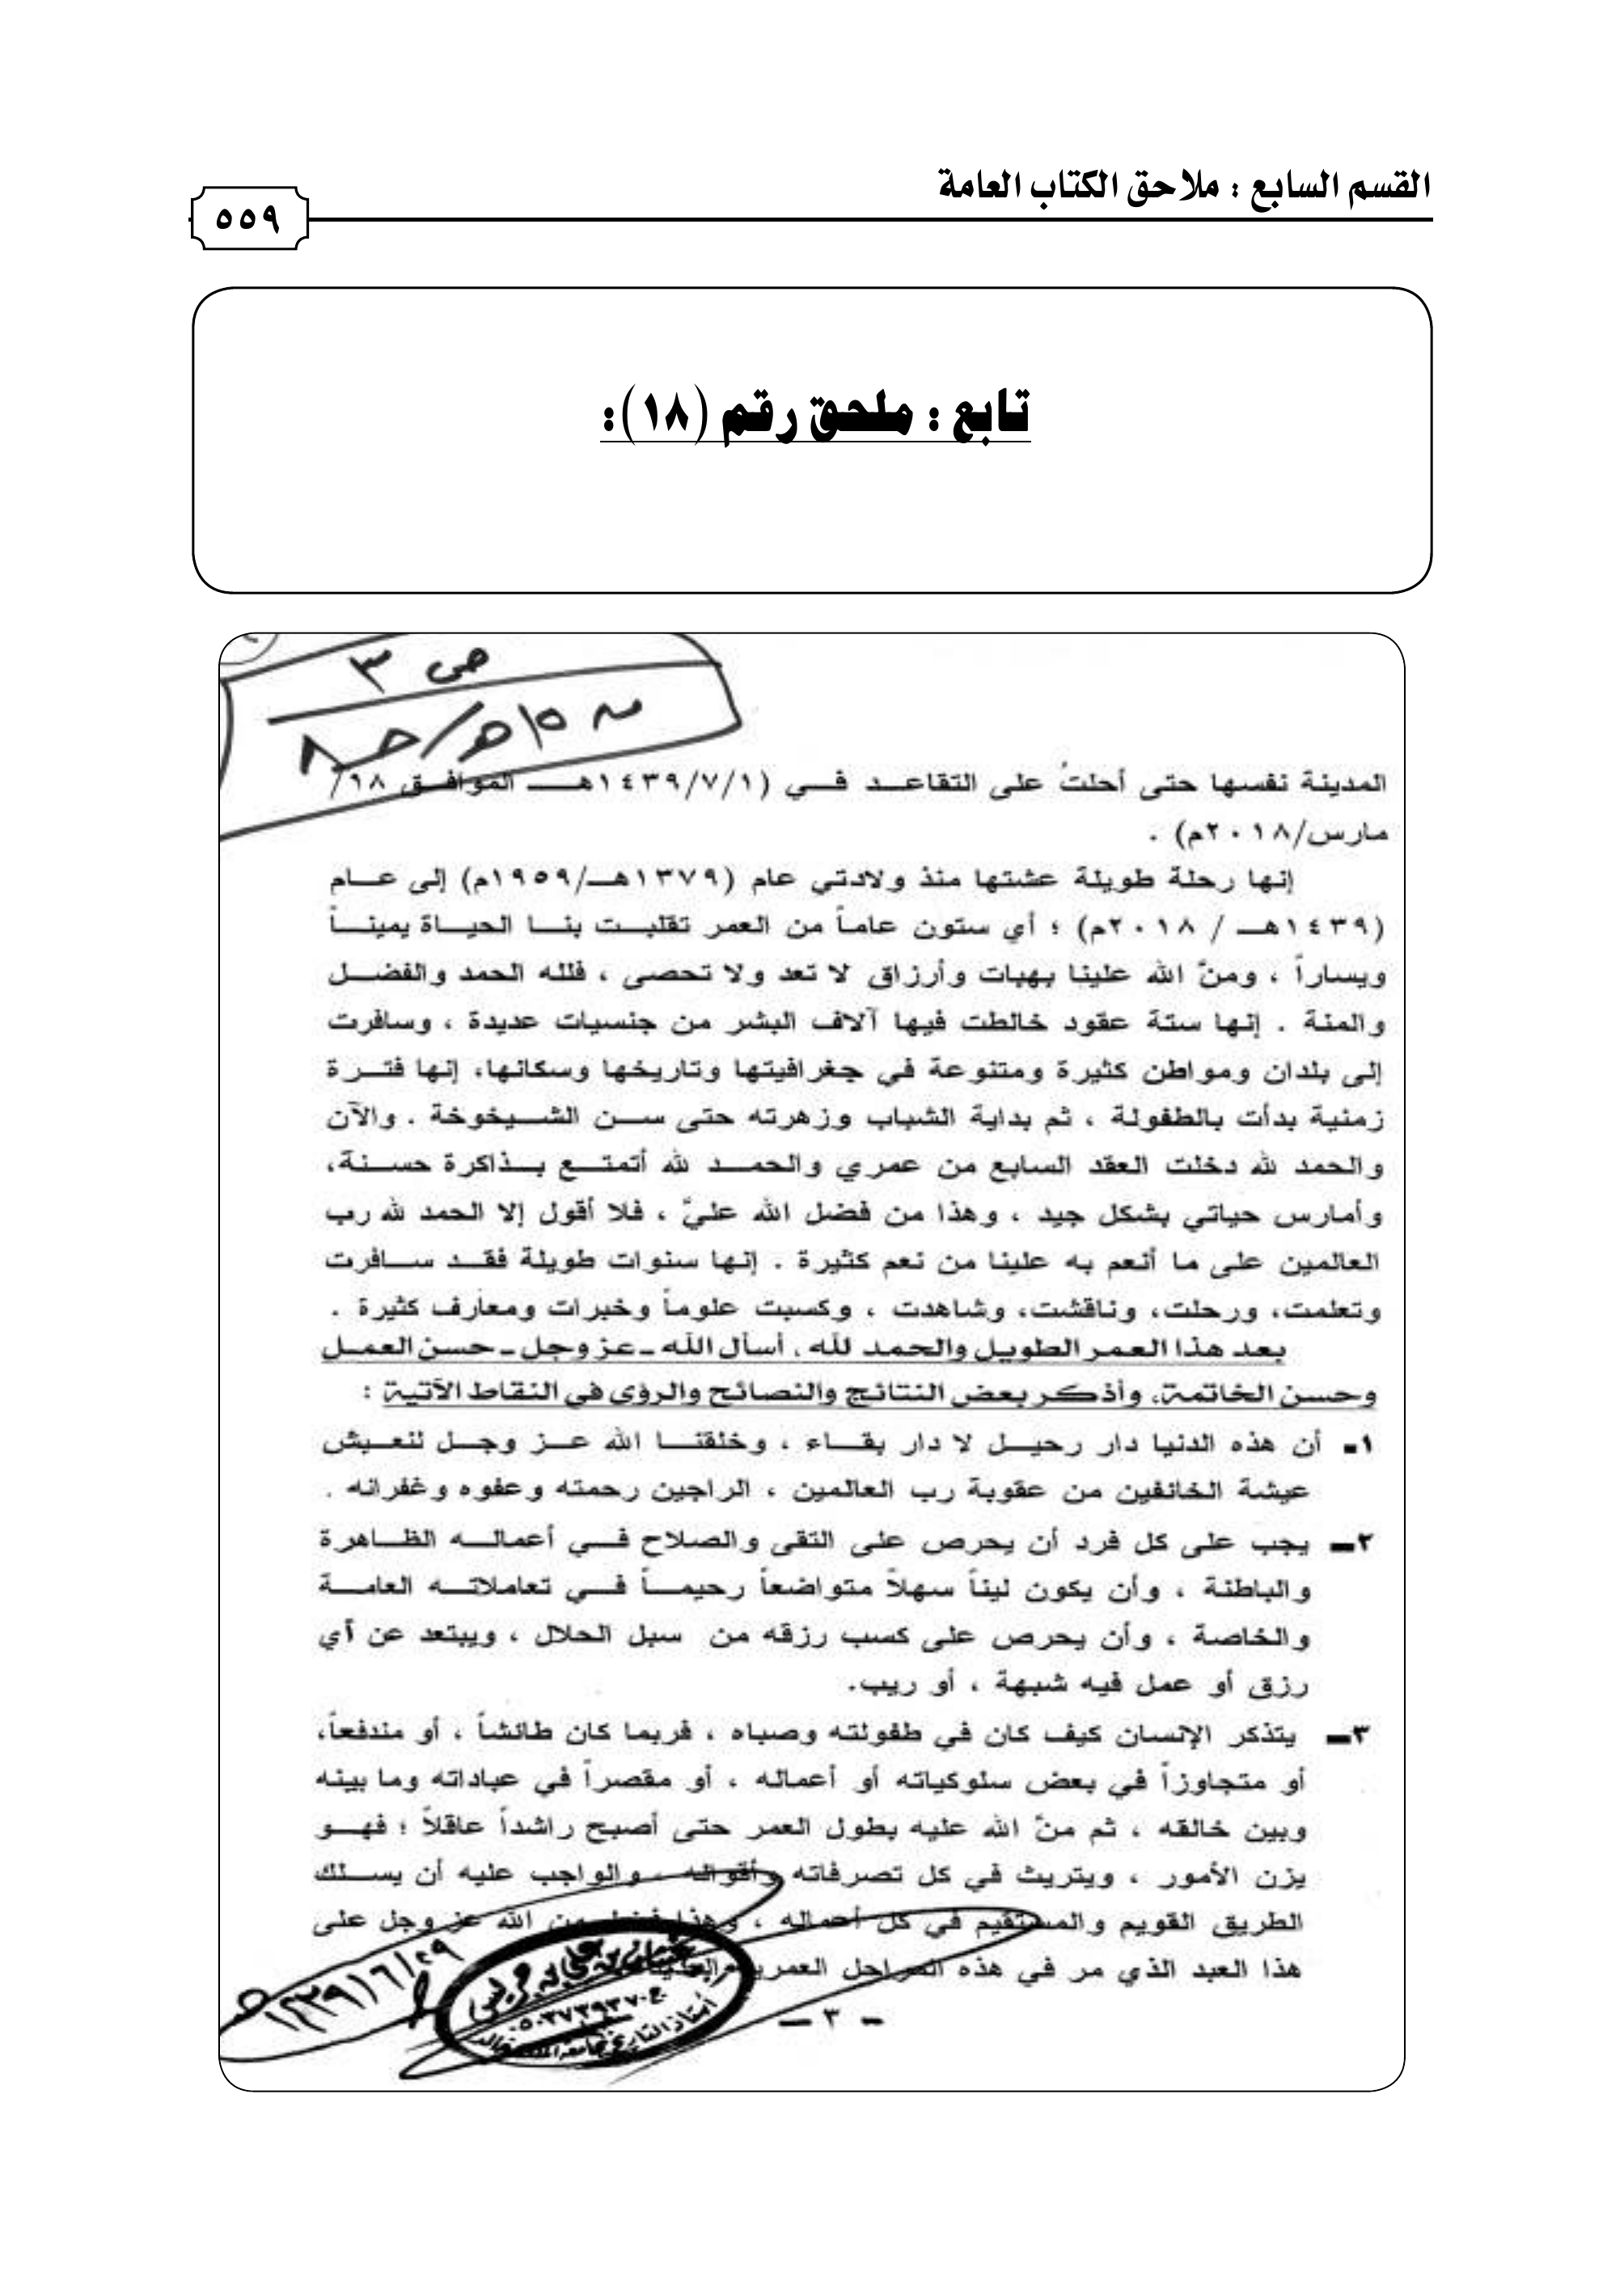 القسم السابع : ملاحق الكتاب العامة
٥٥٩
تابع : ملحق رقم (١٨):
ص ٣
من ١٥هـ/حـ٨
المدينة نفسها حتى أحلتُ على التقاعـد فـي (١٤٣٩/٧/١هـ الموافـق ١٨/
مارس/٢٠١٨م) .
إنها رحلة طويلة عشتها منذ ولادتي عام (١٣٧٩هـ/١٩٥٩م) إلى عـام
(١٤٣٩هـ / ٢٠١٨م) ؛ أي ستون عاماً من العمر تقلبـت بنـا الحيـاة يمينـاً
ويساراً ، ومنّ الله علينا بهبات وأرزاق لا تعد ولا تحصى ، فلله الحمد والفضـل
والمنة . إنها ستة عقود خالطت فيها آلاف البشر من جنسيات عديدة ، وسافرت
إلى بلدان ومواطن كثيرة ومتنوعة في جغرافيتها وتاريخها وسكانها، إنها فتـرة
زمنية بدأت بالطفولة ، ثم بداية الشباب وزهرته حتى سـن الشـيخوخة . والآن
والحمد لله دخلت العقد السابع من عمري والحمـد لله أتمتـع بـذاكرة حسـنة،
وأمارس حياتي بشكل جيد ، وهذا من فضل الله عليّ ، فلا أقول إلا الحمد لله رب
العالمين على ما أنعم به علينا من نعم كثيرة . إنها سنوات طويلة فقـد سـافرت
وتعلمت، ورحلت، وناقشت، وشاهدت ، وكسبت علوماً وخبرات ومعارف كثيرة .
بعد هذا العمر الطويل والحمد لله ، أسأل الله ـ عز وجل ـ حسن العمل
وحسن الخاتمة، وأذكر بعض النتائج والنصائح والرؤى في النقاط الآتية :
١- أن هذه الدنيا دار رحيـل لا دار بقـاء ، وخلقنـا الله عـز وجـل لنعـيش
عيشة الخائفين من عقوبة رب العالمين ، الراجين رحمته وعفوه وغفرانه .
٢- يجب على كل فرد أن يحرص على التقى والصلاح فـي أعمالـه الظـاهرة
والباطنة ، وأن يكون ليناً سهلاً متواضعاً رحيمـاً فـي تعاملاتـه العامـة
والخاصة ، وأن يحرص على كسب رزقه من سبل الحلال ، ويبتعد عن أي
رزق أو عمل فيه شبهة ، أو ريب.
٣- يتذكر الإنسان كيف كان في طفولته وصباه ، فربما كان طائشاً ، أو مندفعاً،
أو متجاوزاً في بعض سلوكياته أو أعماله ، أو مقصراً في عباداته وما بينه
وبين خالقه ، ثم منّ الله عليه بطول العمر حتى أصبح راشداً عاقلاً ؛ فهـو
يزن الأمور ، ويتريث في كل تصرفاته وأقواله ، والواجب عليه أن يسـلك
الطريق القويم والمستقيم في كل أعماله ، وهذا فضل من الله عز وجل على
هذا العبد الذي مر في هذه المراحل العمرية
١٤٣٩/٦/٢٩هـ
أستاذ التاريخ بجامعة الملك خالد
- ٣ -